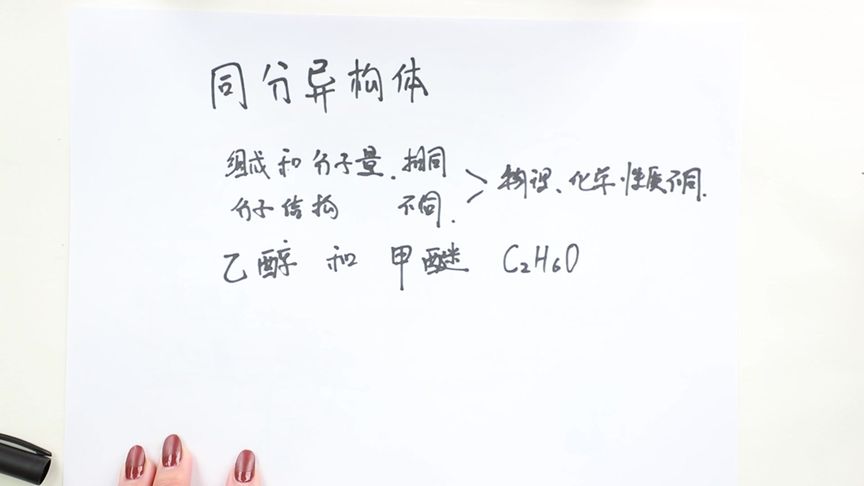 同分异构体
组成和分子量.相同
分子结构 不同. > 物理、化学性质不同.
乙醇 和 甲醚 C₂H₆O